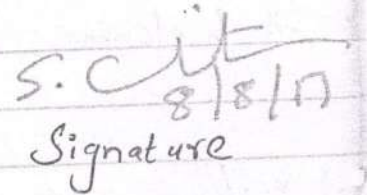 S.
8/8/17
Signature